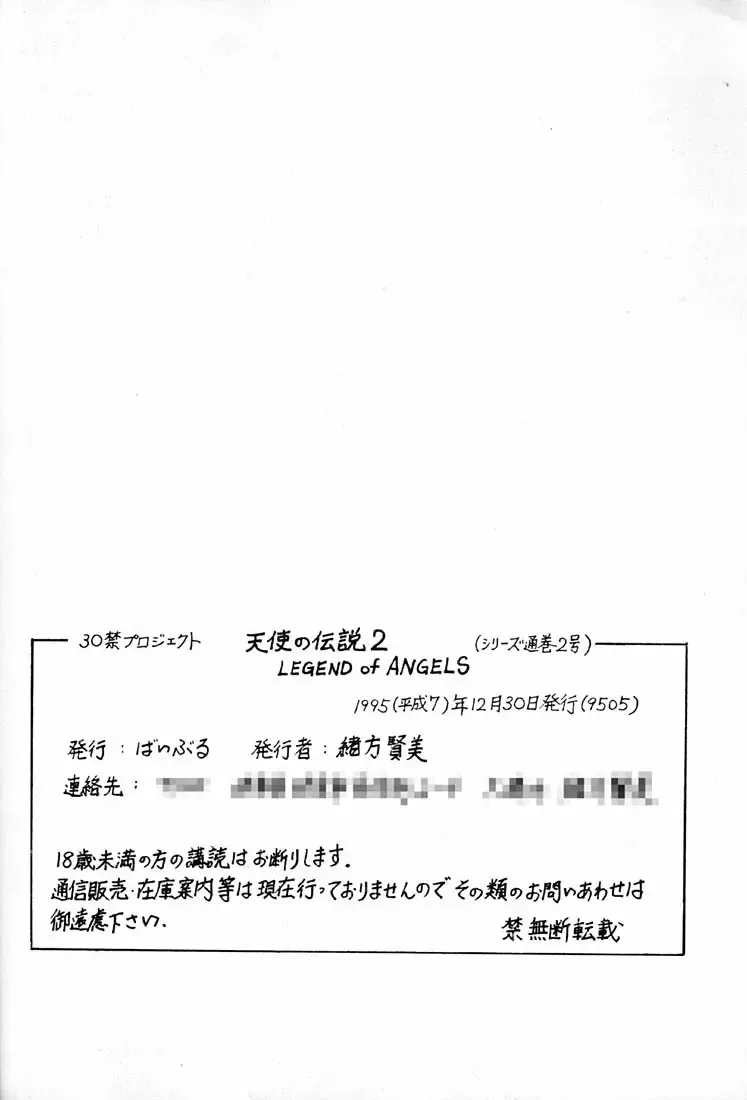 30禁プロジェクト 天使の伝説2 (シリーズ通巻2号)
LEGEND of ANGELS
1995(平成7)年12月30日発行(9505)
発行:ばいぶる 発行者:緒方賢美
連絡先:
18歳未満の方の講読はお断りします.
通信販売・在庫案内等は現在行っておりませんのでその類のお問いあわせは
御遠慮下さい.
禁無断転載